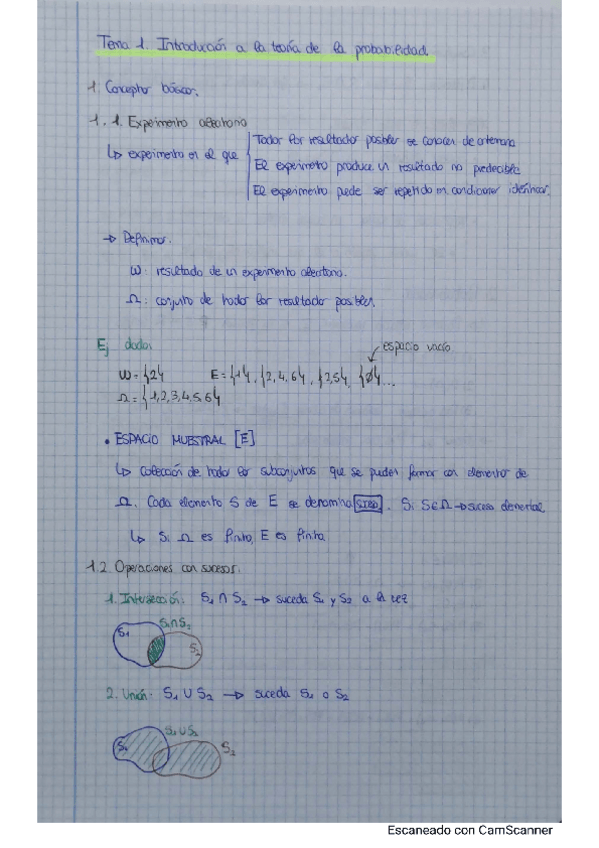 Tema 1. Introducción a la teoría de la probabilidad.
1. Conceptos básicos.
1.1. Experimento aleatorio
↳ experimento en el que
Todos los resultados posibles se conocen de antemano
El experimento produce un resultado no predecible
El experimento puede ser repetido en condiciones idénticas.
→ Definimos.
ω: resultado de un experimento aleatorio.
Ω: conjunto de todos los resultados posibles.
Ej dados
espacio vacío
ω = {2} E = {1}, {2,4,6}, {3,5}, {∅}...
Ω = {1,2,3,4,5,6}
• ESPACIO MUESTRAL [E]
↳ Colección de todos los subconjuntos que se pueden formar con elementos de
Ω. Cada elemento S de E se denomina suceso. Si S∈Ω → suceso elemental
↳ Si Ω es finito, E es finito.
1.2. Operaciones con sucesos.
1. Intersección: S₁ ∩ S₂ → suceda S₁ y S₂ a la vez
S₁∩S₂
S₁
S₂
2. Unión: S₁ ∪ S₂ → suceda S₁ o S₂
S₁∪S₂
S₁
S₂
Escaneado con CamScanner